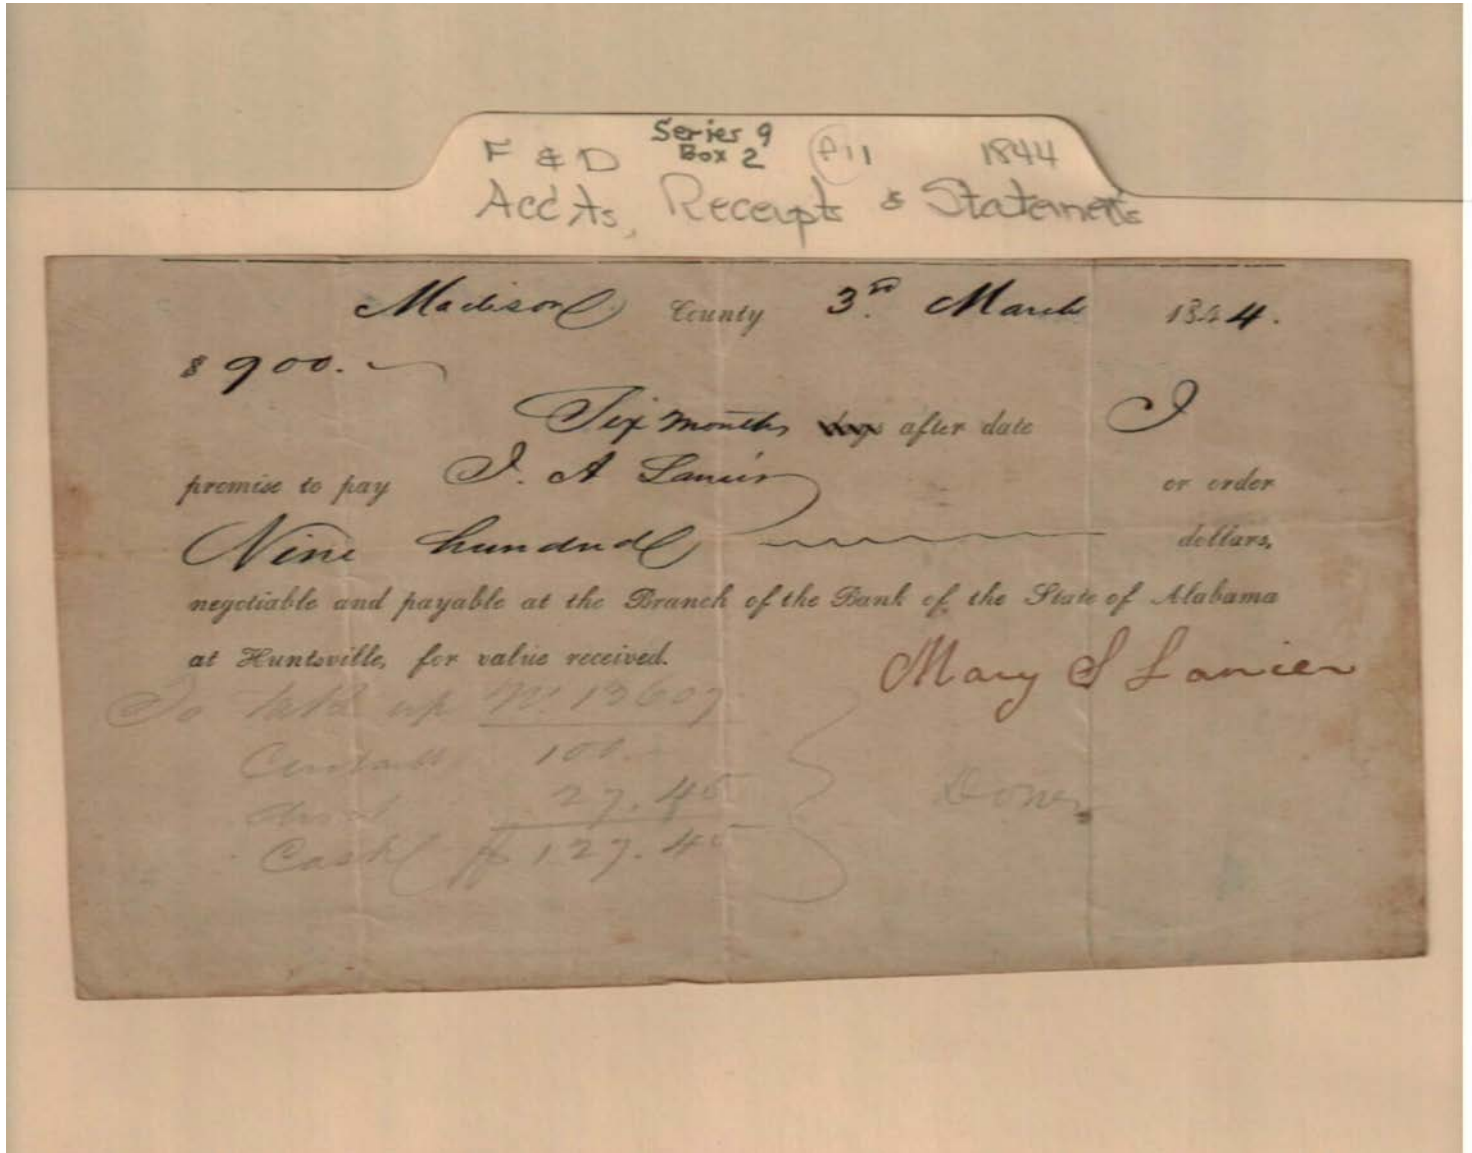 Series 9
F & D Box 2 P11 1844
Acc'ts, Receipts & Statements
Madison County 3rd March 1844.
$900.
Six months days after date I
promise to pay I. A Lanier or order
Nine hundred dollars,
negotiable and payable at the Branch of the Bank of the State of Alabama
at Huntsville, for value received.
Mary S Lanier
To take up No. 13607
100.
27.40
Cash $127.40
Done